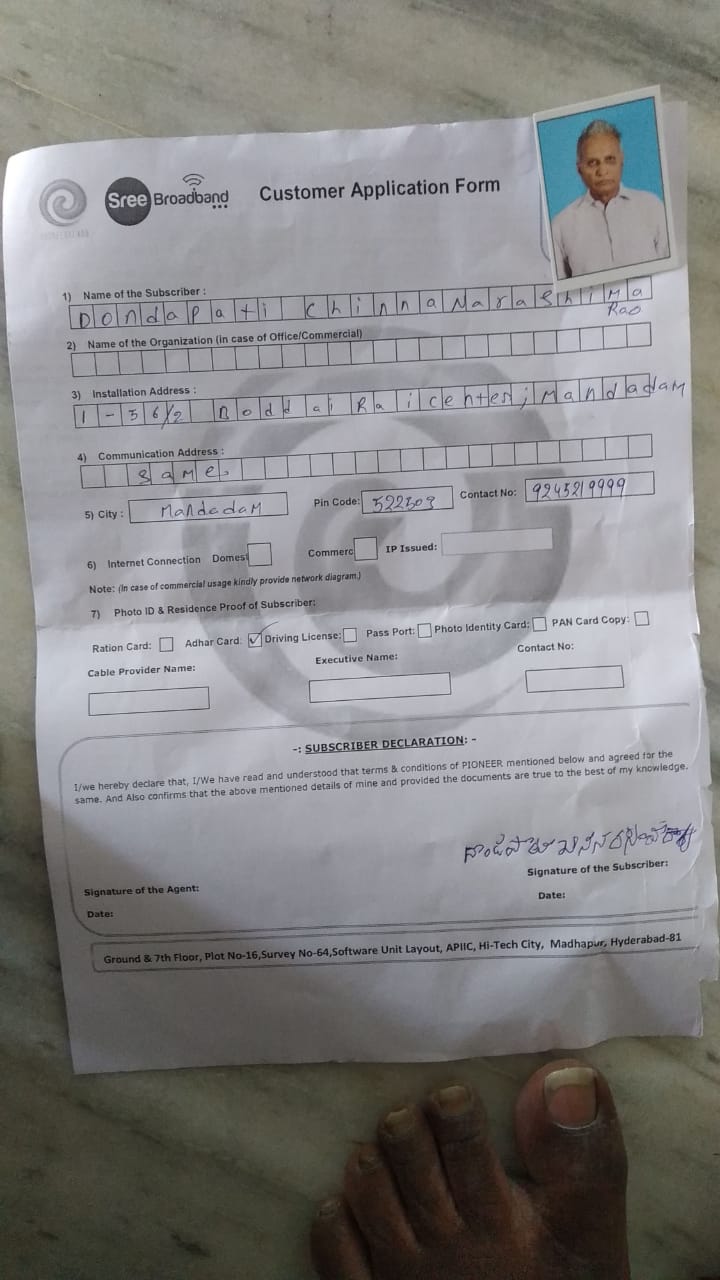 Sree Broadband
Customer Application Form
1) Name of the Subscriber :
Dondapati Chinna Narashima
Rao
2) Name of the Organization (in case of Office/Commercial)
3) Installation Address :
1-56/2 Rai center, Mandadam
4) Communication Address :
Same.
5) City : Mandadam Pin Code: 522503 Contact No: 9245219999
6) Internet Connection Domes Commerc IP Issued:
Note: (In case of commercial usage kindly provide network diagram.)
7) Photo ID & Residence Proof of Subscriber:
Ration Card: Adhar Card: ✓ Driving License: Pass Port: Photo Identity Card: PAN Card Copy:
Cable Provider Name: Executive Name: Contact No:
-: SUBSCRIBER DECLARATION: -
I/we hereby declare that, I/We have read and understood that terms & conditions of PIONEER mentioned below and agreed for the
same. And Also confirms that the above mentioned details of mine and provided the documents are true to the best of my knowledge.
Signature of the Subscriber:
Signature of the Agent:
Date:
Date:
Ground & 7th Floor, Plot No-16,Survey No-64,Software Unit Layout, APIIC, Hi-Tech City, Madhapur, Hyderabad-81